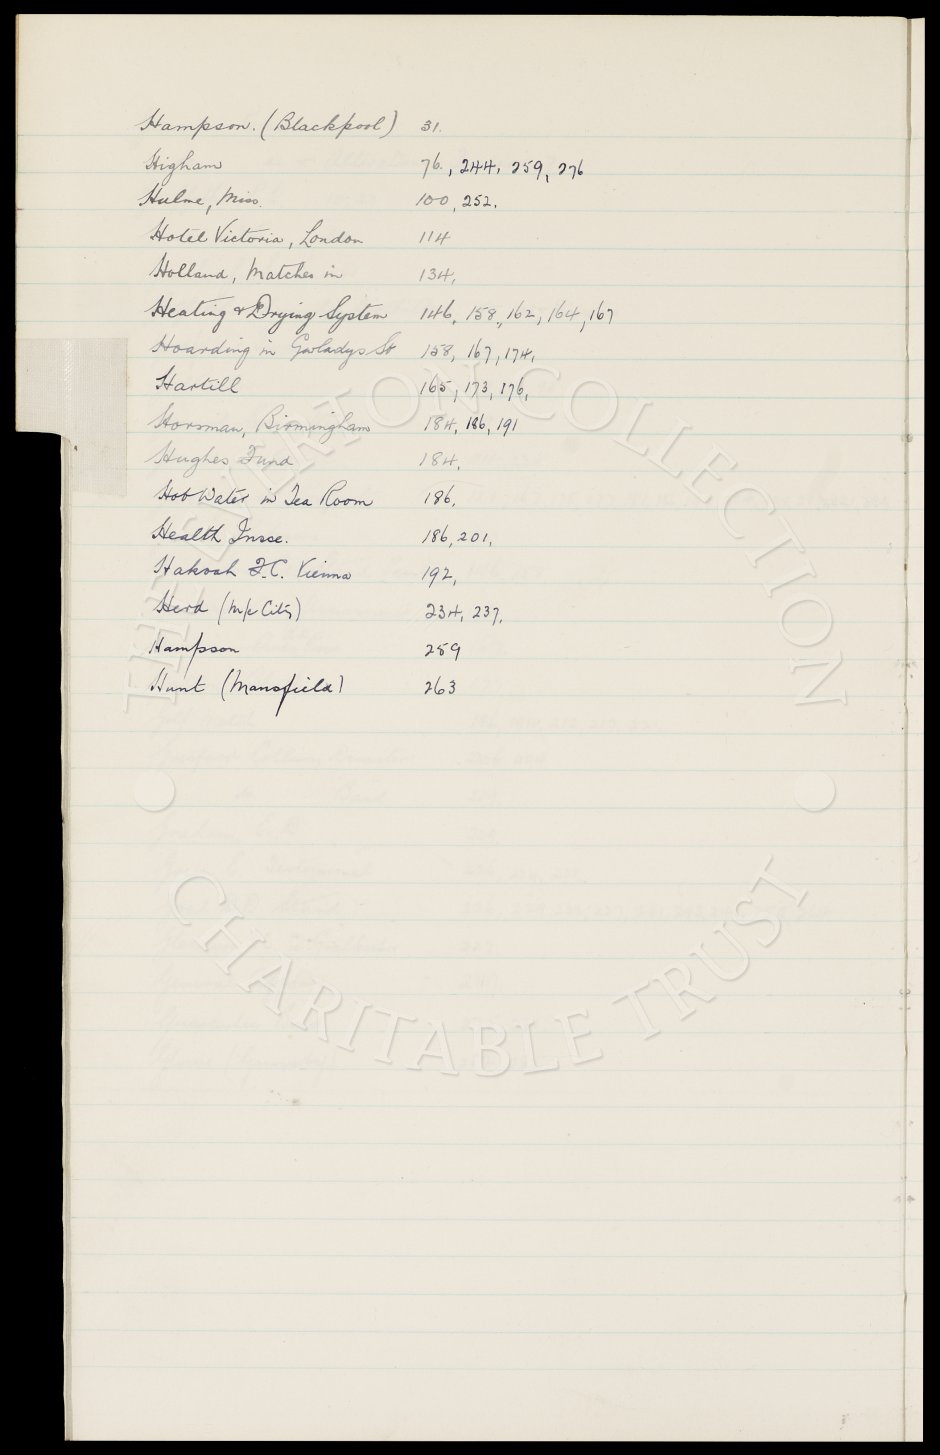 Hampson. (Blackpool) 31.
Higham 76., 244, 259, 276
Hulme, Miss. 100, 252.
Hotel Victoria, London 114
Holland, Matches in 134,
Heating & Drying System 146, 158, 162, 164, 167
Hoarding in Gwladys St 158, 167, 174,
Hartill 165, 173, 176,
Horsman, Birmingham 184, 186, 191
Hughes Fund 184,
Hot Water in Tea Room 186,
Health Insce. 186, 201,
Hakoah F.C. Vienna 192,
Herd (M/c City) 234, 237,
Hampson 259
Hunt (Mansfield) 263
THE EVERTON COLLECTION
CHARITABLE TRUST